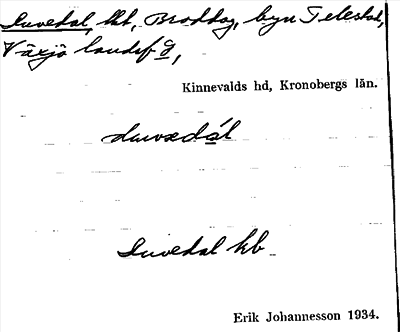 Luvedal, lht, Broddag, byn Telestad,
Växjö landsf g,
Kinnevalds hd, Kronobergs län.
luvedál
Luvedal kb
Erik Johannesson 1934.